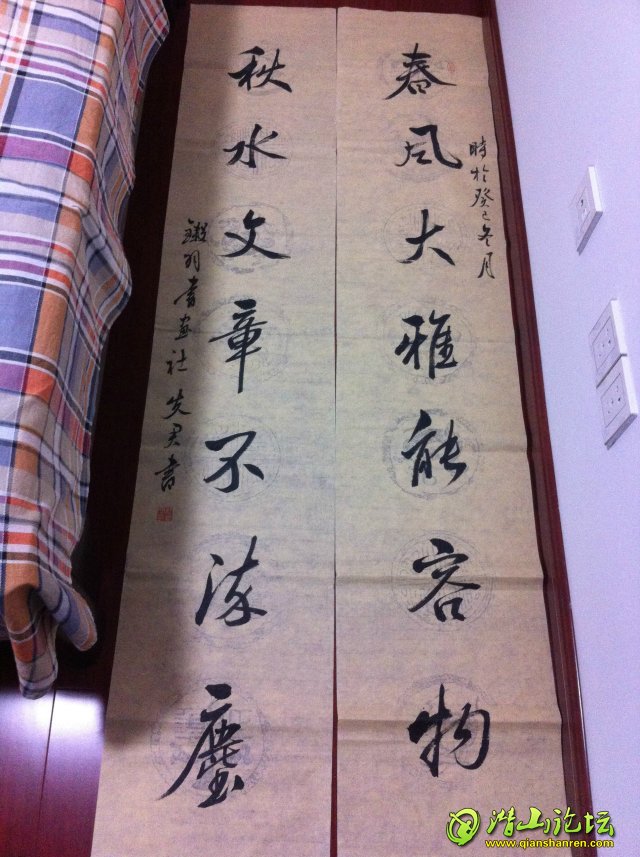 春风大雅能容物
時於癸巳冬月
秋水文章不染塵
書画社 先君書
潜山论坛
www.qianshanren.com